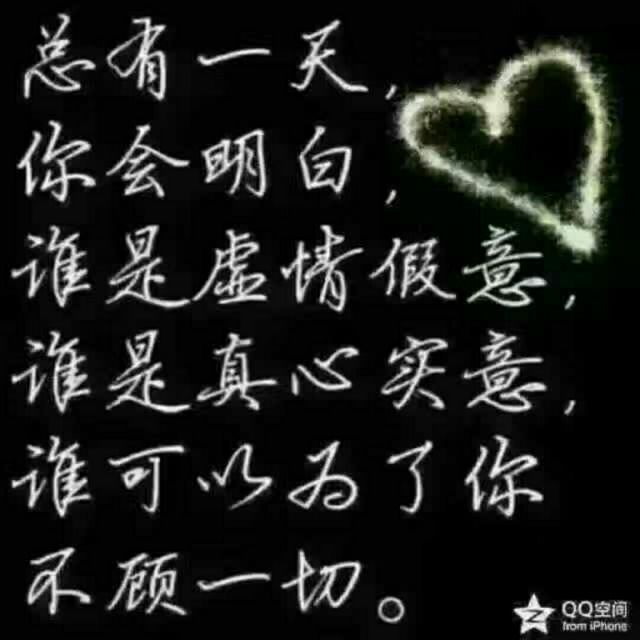 总有一天，
你会明白，
谁是虚情假意，
谁是真心实意，
谁可以为了你
不顾一切。
QQ空间
from iPhone